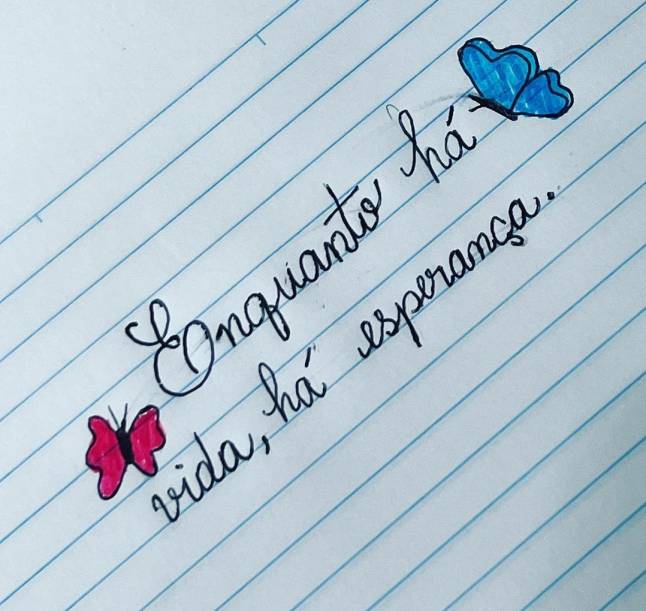 Enquanto há
vida, há esperança.